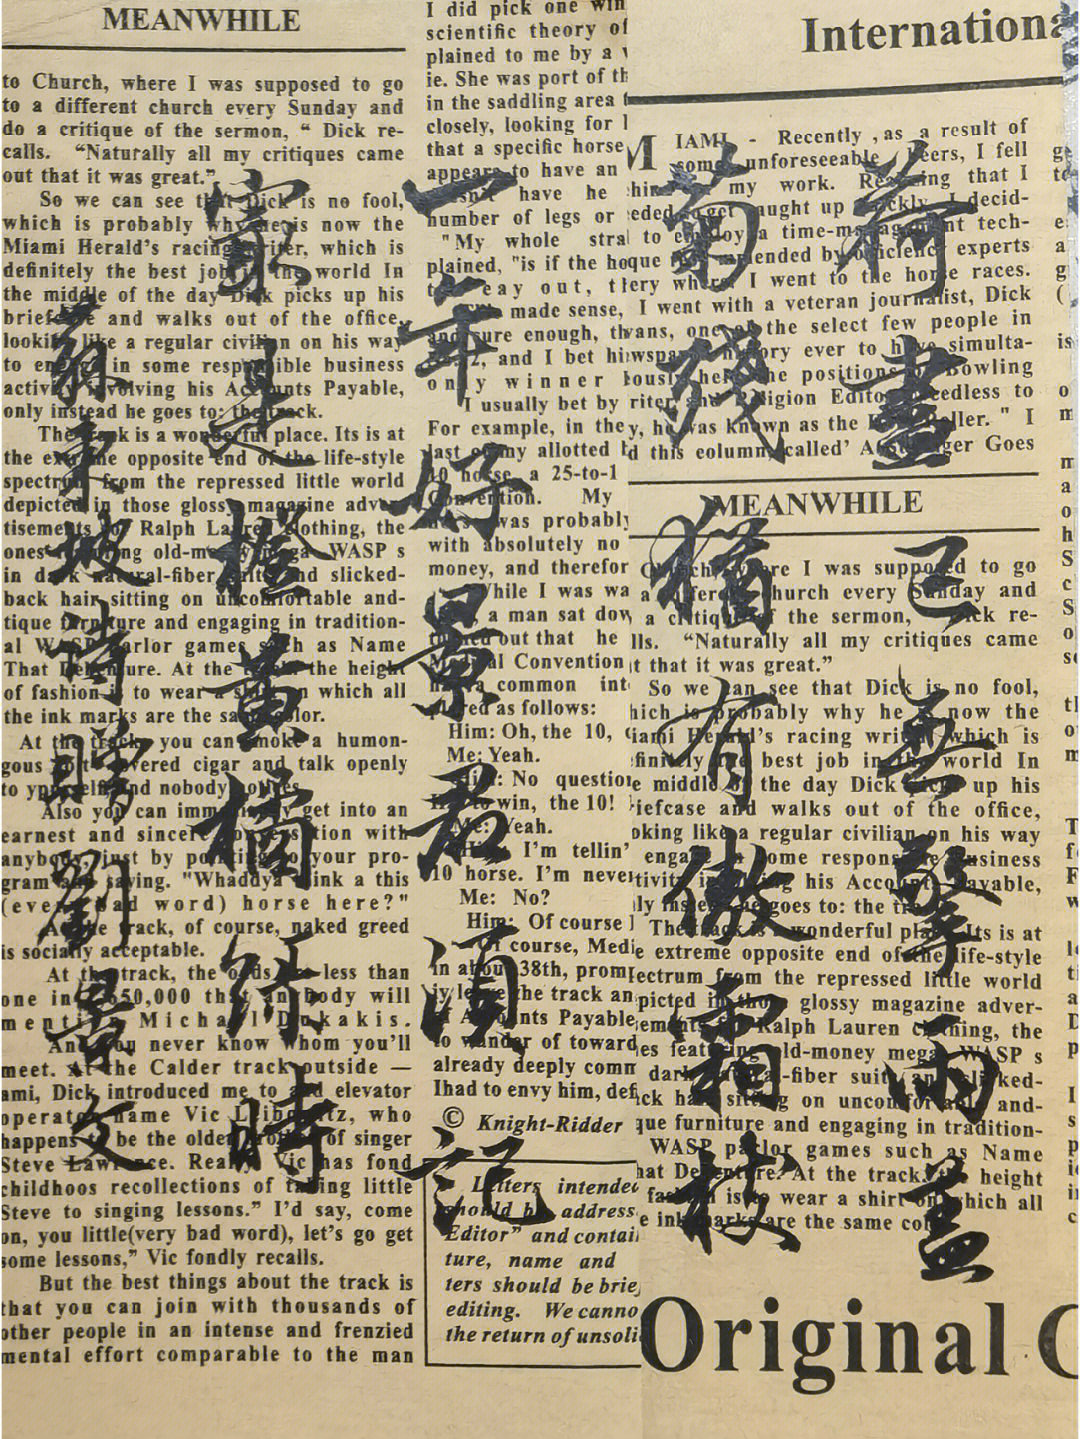 荷盡已無擎雨蓋
菊殘猶有傲霜枝
一年好景君須記
最是橙黄橘绿時
東坡詩贈劉景文
MEANWHILE
to Church, where I was supposed to go
to a different church every Sunday and
do a critique of the sermon, “ Dick re-
calls. “Naturally all my critiques came
out that it was great.”
So we can see that Dick is no fool,
which is probably why he is now the
Miami Herald’s racing writer, which is
definitely the best job in the world In
the middle of the day Dick picks up his
briefcase and walks out of the office,
looking like a regular civilian on his way
to engage in some responsible business
activity involving his Accounts Payable,
only instead he goes to: the track.
The track is a wonderful place. Its is at
the extreme opposite end of the life-style
spectrum from the repressed little world
depicted in those glossy magazine adver-
tisements for Ralph Lauren clothing, the
ones featuring old-money mega WASP s
in dark natural-fiber suits and slicked-
back hair sitting on uncomfortable and-
tique furniture and engaging in tradition-
al WASP parlor games such as Name
That Debenture. At the track the height
of fashion is to wear a shirt on which all
the ink marks are the same color.
At the track, you can smoke a humon-
gous covered cigar and talk openly
to yourself and nobody notices.
Also you can immediately get into an
earnest and sincere conversation with
anybody just by pointing to your pro-
gram and saying. "Whaddya think a this
(every bad word) horse here?"
At the track, of course, naked greed
is socially acceptable.
At the track, the odds are less than
one in 650,000 that anybody will
mention Michael Dukakis.
And you never know whom you’ll
meet. At the Calder track outside —
ami, Dick introduced me to and elevator
operator name Vic who
happens to be the older brother of singer
Steve Lawrence. Really Vic has fond
childhoos recollections of taking little
Steve to singing lessons.” I’d say, come
on, you little(very bad word), let’s go get
some lessons,” Vic fondly recalls.
But the best things about the track is
that you can join with thousands of
other people in an intense and frenzied
mental effort comparable to the man
I did pick one win
scientific theory of
plained to me by a
ie. She was port of th
in the saddling area
closely, looking for
that a specific horse
appears to have an
have he
number of legs or
"My whole stra
plained, "is if the ho
made sense,
and sure enough, th
and I bet hi
only winner
I usually bet by
For example, in the
last of my allotted
10 horse, a 25-to-1
Convention. My
was probably
with absolutely no
money, and therefor
While I was wa
a man sat dow
turned out that he
Medical Convention
a common int
as follows:
Him: Oh, the 10,
Me: Yeah.
Him: No question
to win, the 10!
Me: Yeah.
I’m tellin’
10 horse. I’m never
Me: No?
Him: Of course
Of course, Medi
in about 38th, prom
the track an
Accounts Payable
to wander of toward
already deeply comm
Ihad to envy him, def
© Knight-Ridder
Letters intended
should be address
Editor” and contai
ture, name and
ters should be brie
editing. We canno
the return of unsoli
Internationa
MIAMI - Recently ,as a result of
some unforeseeable I fell
my work. Realizing that I
get caught up quickly, I decid-
to employ a time-management tech-
que recommended by efficiency experts
where I went to the horse races.
I went with a veteran journalist, Dick
one of the select few people in
history ever to have simulta-
held the positions of Bowling
and Religion Editor. Needless to
he was known as the " I
this column called’ Goes
MEANWHILE
Church, where I was supposed to go
a different church every Sunday and
a critique of the sermon, Dick re-
lls. “Naturally all my critiques came
t that it was great.”
So we can see that Dick is no fool,
hich is probably why he is now the
iami Herald’s racing writer, which is
finitely the best job in the world In
e middle of the day Dick picks up his
iefcase and walks out of the office,
oking like a regular civilian on his way
engage in some responsible business
tivity involving his Accounts Payable,
ly instead he goes to: the track.
The track is a wonderful place. Its is at
e extreme opposite end of the life-style
ectrum from the repressed little world
picted in those glossy magazine adver-
ements for Ralph Lauren clothing, the
es featuring old-money mega WASP s
dark natural-fiber suits and slicked-
ck hair sitting on uncomfortable and-
que furniture and engaging in tradition-
WASP parlor games such as Name
hat Debenture. At the track, the height
fashion is to wear a shirt on which all
e ink marks are the same color.
Original C